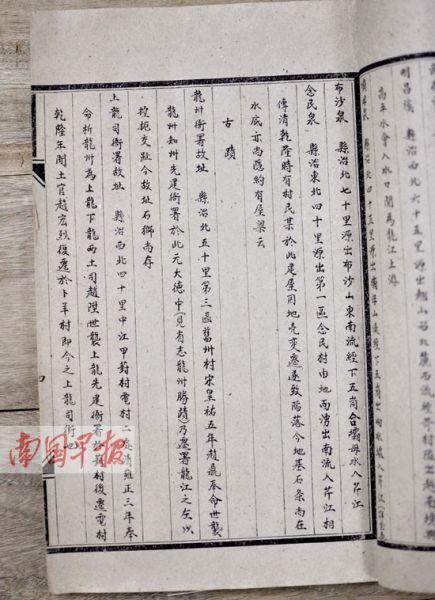 高平水會入水口關為龍江上游
布沙泉 縣治北七十里源出布沙山東南流經下五崗合壩母水入芹江
念民泉 縣治東北四十里源出第一區念民村由地而湧出南流入芹江相
傳清乾隆時有村民某於此建屋因地壳变遷遂致陷落今地基石条尚在
水底亦尚隱約有屋梁云
古蹟
龍州衙署故址 縣治北五十里第三區舊州村宋皇祐五年趙鼎奉命世襲
龍州知州先建衙署於此元大德中(見省志龍州勝蹟)乃遷署龍江之左以
控扼交趾今故址石獅尚存
上龍司衙署故址 縣治西北四十里中江甲村電村二處清雍正三年奉
命析龍州為上龍下龍兩土司趙陞世襲上龍先建衙署於村後遷電村
乾隆年間土官趙宏烈復遷於卜羊村即今之上龍司街也
四
南国早报